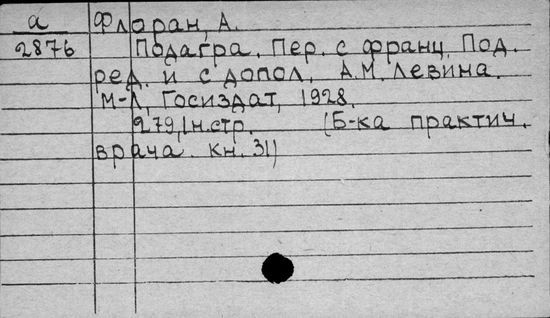 а
2876
Флоран, А.
Подагра. Пер. с франц. Под.
ред. и с допол. А.М. Левина.
М-Л, Госиздат, 1928.
279,1н.стр. (Б-ка практич.
врача. кн. 31)